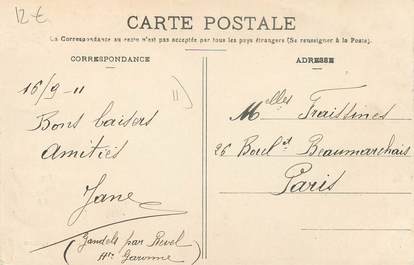 12€
CARTE POSTALE
La Correspondance au recto n'est pas acceptée par tous les pays étrangers (Se renseigner à la Poste).
CORRESPONDANCE
16/9-11
Bons baisers
Amitiés
Jane
(Jandels par Revel
Hte Garonne)
ADRESSE
Melles Fraissines
26 Borel et Beaumarchais
Paris